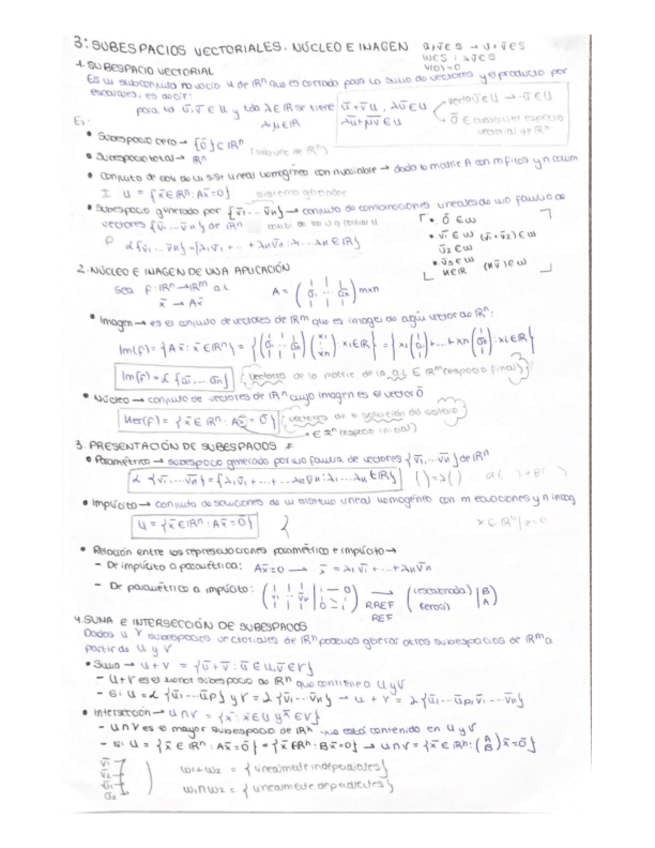 3: SUBESPACIOS VECTORIALES. NÚCLEO E IMAGEN
1. SUBESPACIO VECTORIAL
Es un subconjunto no vacío U de ℝⁿ que es cerrado para la suma de vectores y el producto por
escalares, es decir:
para todo ū, v̄ ∈ U y todo λ ∈ ℝ se tiene ū+v̄ ∈ U, λū ∈ U
λ,μ∈ℝ λū+μv̄ ∈ U
Ej:
• Subespacio cero → {ō} ⊂ ℝⁿ
• Subespacio total → ℝⁿ
• Conjunto de sol. de un sist. lineal homogéneo con n variables → dada la matriz A con m filas y n colum
U = {x̄ ∈ ℝⁿ: Ax̄=0} sistema generador
• Subespacio generado por {v̄₁...v̄n} → conjunto de combinaciones lineales de una familia de
vectores {v̄₁...v̄n} de ℝⁿ
ℒ{v̄₁...v̄n} = {λ₁v̄₁+...+λnv̄n : λ₁...λn ∈ ℝ}
• ō ∈ W
• v̄₁ ∈ W (v̄₁+v̄₂) ∈ W
v̄₂ ∈ W
2. NÚCLEO E IMAGEN DE UNA APLICACIÓN
Sea f: ℝⁿ → ℝᵐ a.l. A = (ā₁ ... ān) mxn
x̄ → Ax̄
• Imagen → es el conjunto de vectores de ℝᵐ que es imagen de algún vector de ℝⁿ:
Im(f) = {Ax̄: x̄ ∈ ℝⁿ} = {(ā₁ ... ān)(x₁ ⋮ xn): xi ∈ ℝ} = {x₁(ā₁)+...+xn(ān): xi ∈ ℝ}
Im(f) = ℒ{ā₁...ān} (vectores de la matriz de la a.l. ∈ ℝᵐ (espacio final))
• Núcleo → conjunto de vectores de ℝⁿ cuya imagen es el vector ō
Ker(f) = {x̄ ∈ ℝⁿ: Ax̄ = ō} vectores de la solución del sistema
• ∈ ℝⁿ (espacio inicial)
3. PRESENTACIÓN DE SUBESPACIOS *
• Paramétrico → subespacio generado por una familia de vectores {v̄₁...v̄n} de ℝⁿ
ℒ{v̄₁...v̄n} = {λ₁v̄₁+...+λnv̄n : λ₁...λn ∈ ℝ}
• Implícito → conjunto de soluciones de un sistema lineal homogéneo con m ecuaciones y n incog
U = {x̄ ∈ ℝⁿ: Ax̄=ō}
• Relación entre las representaciones paramétrica e implícita →
– De implícita a paramétrica: Ax̄=0 → x̄ = λ₁v̄₁+...+λnv̄n
– De paramétrica a implícita: (v̄₁ ... v̄p | 1 – 0 0 – 1) → (escalonada) (ceros) | B A
RREF
REF
4. SUMA E INTERSECCIÓN DE SUBESPACIOS
Dados U y V subespacios vectoriales de ℝⁿ podemos generar otros subespacios de ℝᵐ a
partir de U y V
• Suma → U+V = {ū+v̄ : ū ∈ U, v̄ ∈ V}
– U+V es el menor subespacio de ℝⁿ que contiene a U y V
– si U = ℒ{ū₁...ūp} y V = ℒ{v̄₁...v̄n} → U+V = ℒ{ū₁...ūp, v̄₁...v̄n}
• Intersección → U∩V = {x̄: x̄ ∈ U y x̄ ∈ V}
– U∩V es el mayor subespacio de ℝⁿ que está contenido en U y V
– si U = {x̄ ∈ ℝⁿ: Ax̄=ō} = {x̄ ∈ ℝⁿ: Bx̄=0} → U∩V = {x̄ ∈ ℝⁿ: (A B)x̄=ō}
W₁+W₂ = {linealmente independientes}
W₁∩W₂ = {linealmente dependientes}